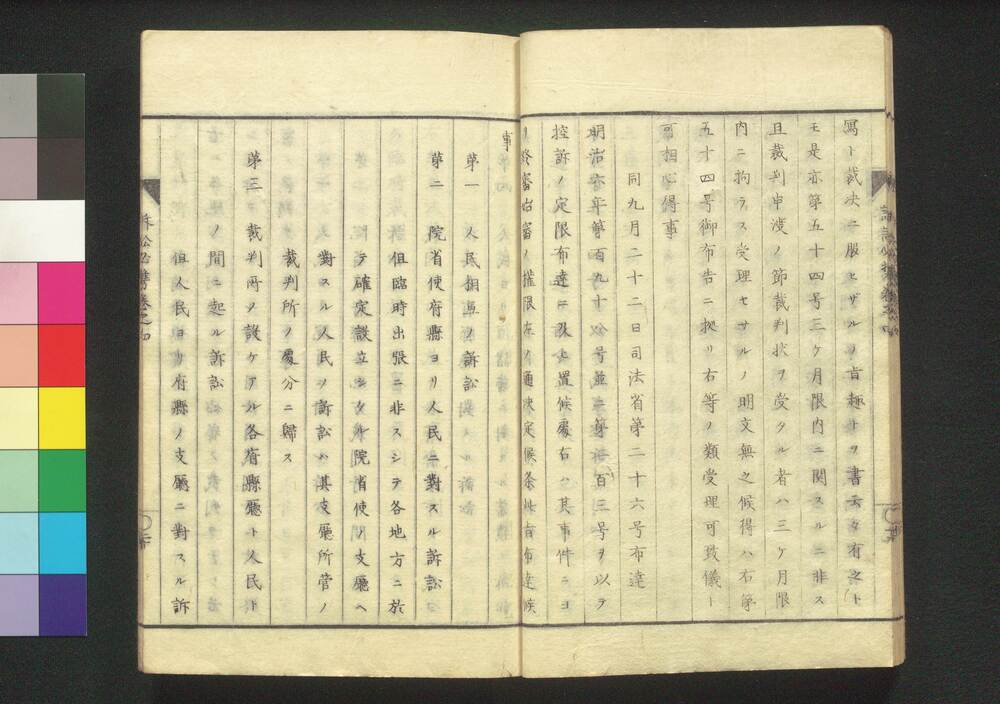 寫ト裁决ニ服セザルノ肯趣トヲ書云々有之ト
モ是亦第五十四号三ケ月限内ニ関スルニ非ス
且裁判申渡ノ節裁判状ヲ受タル者ハ三ケ月限
内ニ拘ラス受理セサルノ明文無之候得ハ右第
五十四号御布告ニ拠リ右等ノ類受理可致儀ト
可相心得事
同九月二十二日司法省第二十六号布達
明治六年第百九十
号並ニ第
百三号ヲ以テ
控訴ノ定限布達ニ及ヒ置候處右ハ其事件ニヨ
リ終審始審ノ權限左ノ通决定候条此旨布達候
事
第一　人民相互ノ訴訟
第二　院省使府縣ヨリ人民ニ對スル訴訟
但臨時出張ニ非スシテ各地方ニ於
テ確定設立シタル院省使ノ支廳ヘ
對スル人民ノ訴訟ハ其支廳所管ノ
裁判所ノ處分ニ歸ス
第三　裁判所ヲ設ケアル各府縣廳ト人民ト
ノ間ニ起ル訴訟
但人民ヨリ府縣ノ支廳ニ對スル訴
訴訟必携巻之四